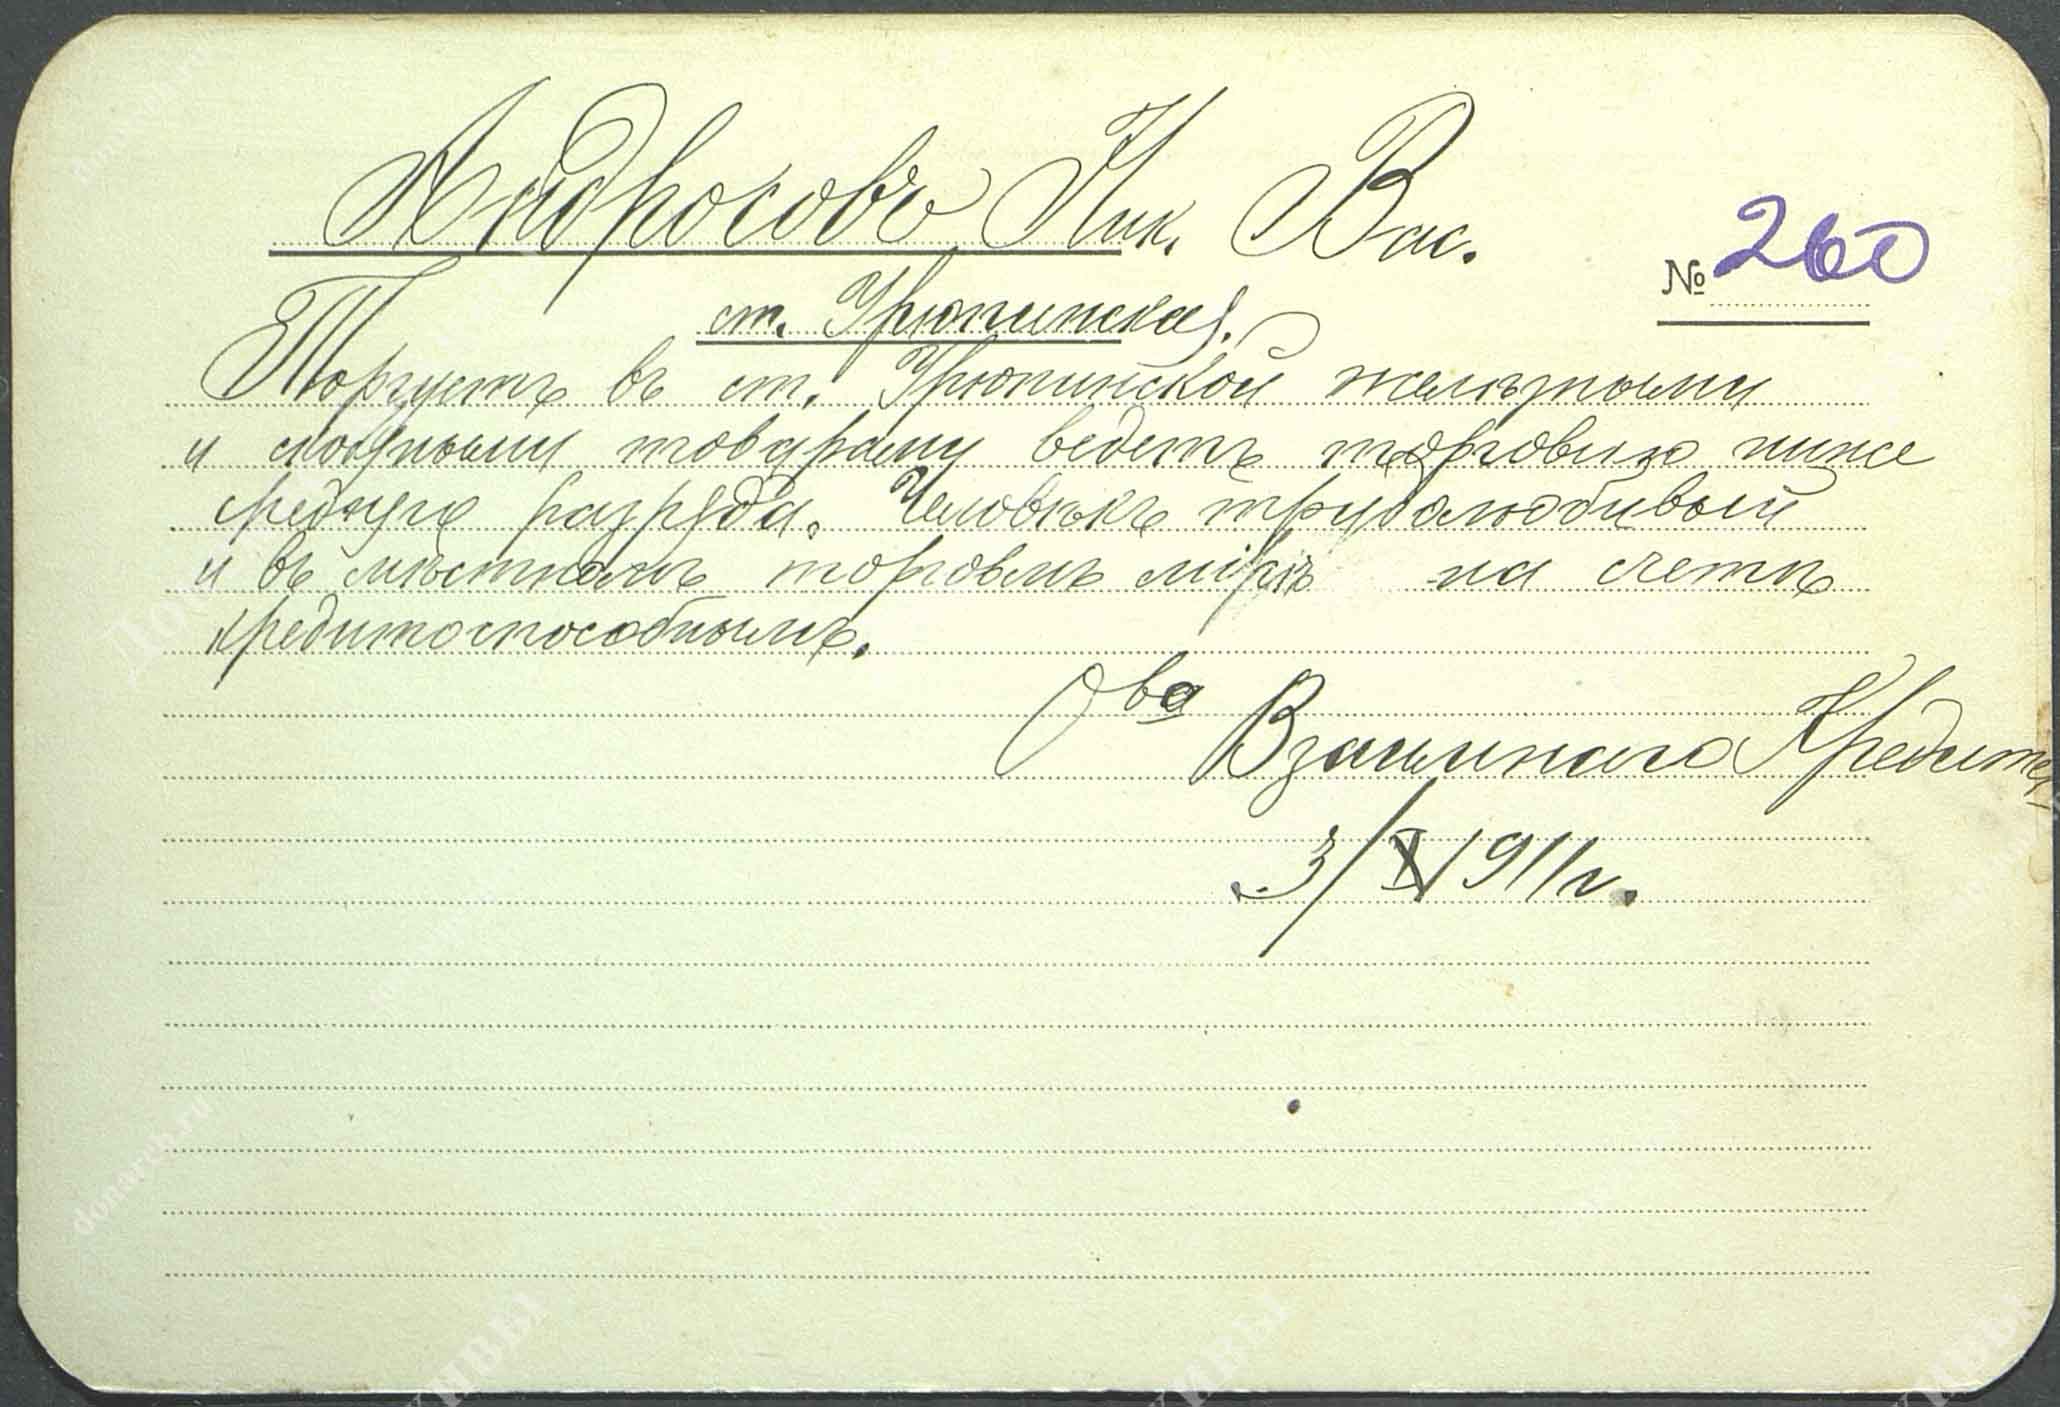 Андросовъ Ник. Вас.
№ 260
ст. Урюпинская.
Торгуетъ въ ст. Урюпинской желѣзными
и скобяными товарами ведетъ торговлю ниже
средняго разряда. Человѣкъ трудолюбивый
и въ мѣстномъ торговомъ мірѣ на счету
кредитоспособнымъ.
Ова Взаимнаго Кредита
3/X 1911 г.
donarch.ru